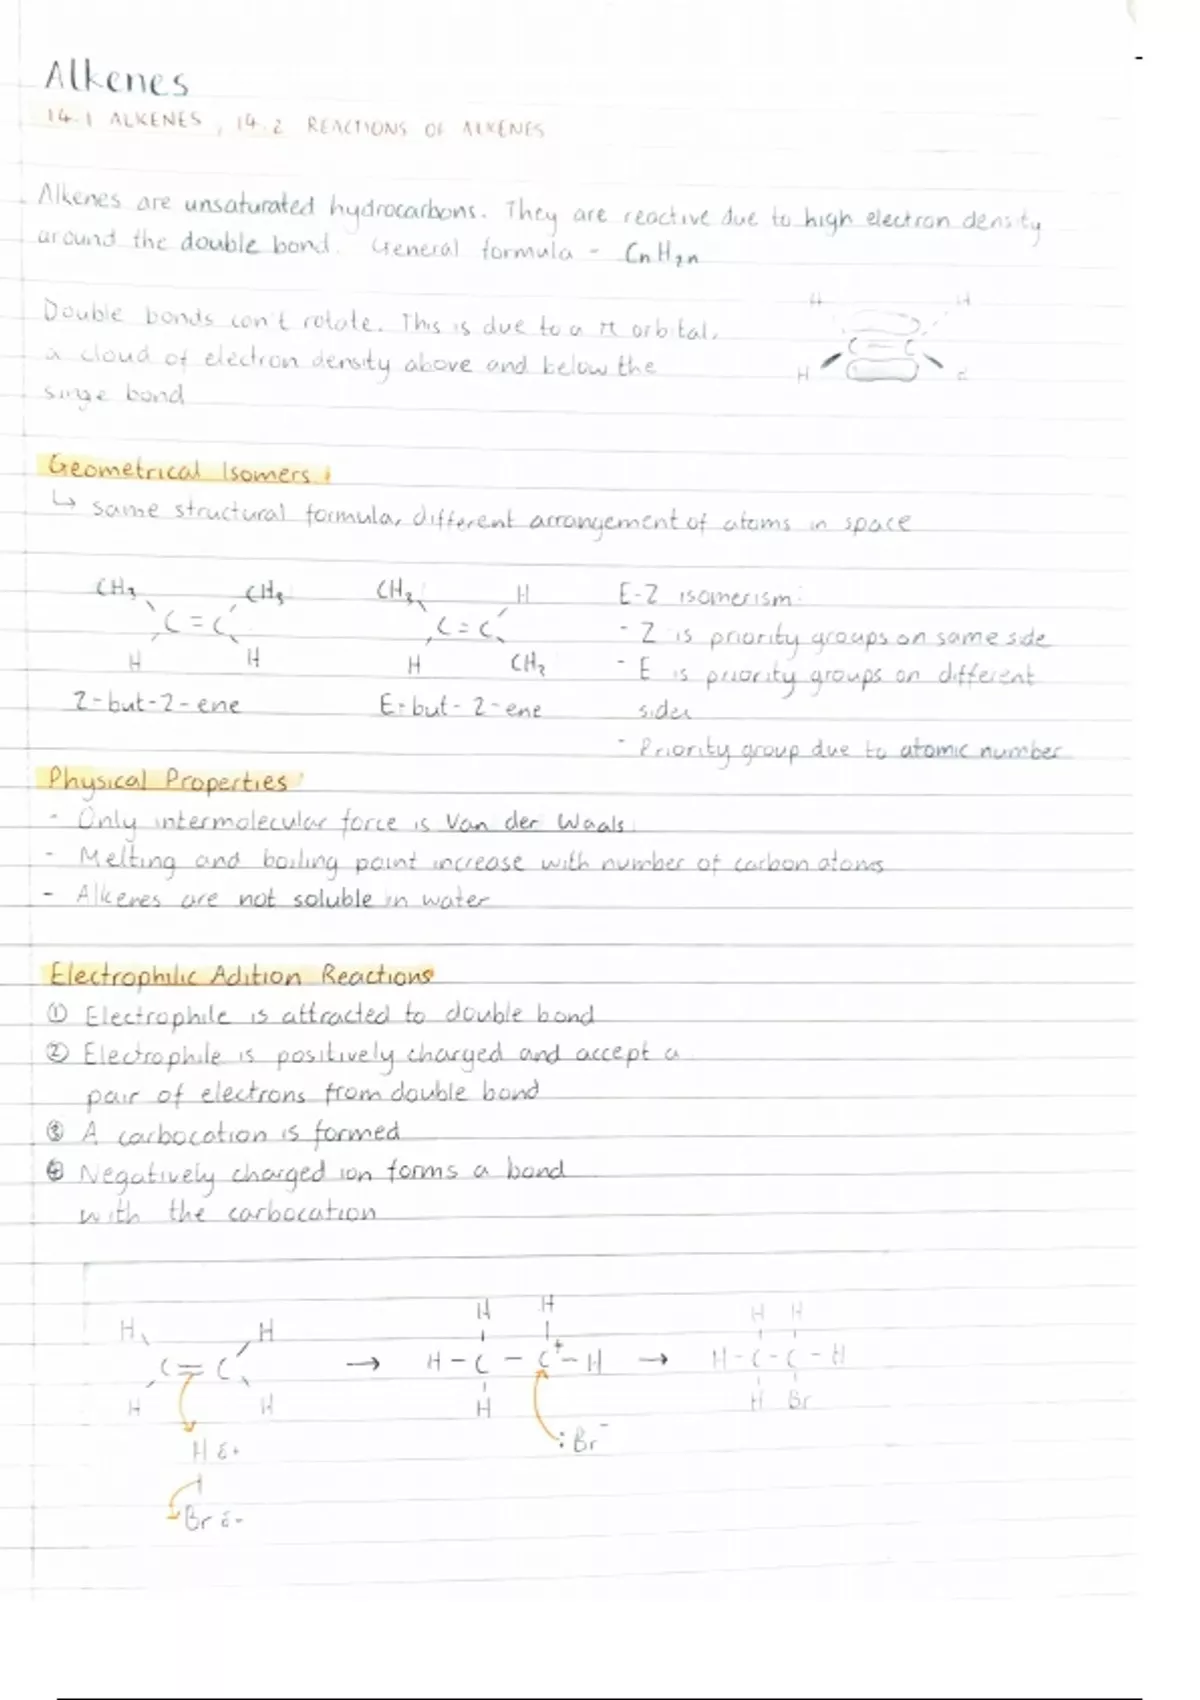 Alkenes
14.1 ALKENES, 14.2 REACTIONS OF ALKENES
Alkenes are unsaturated hydrocarbons. They are reactive due to high electron density
around the double bond. General formula - CnH2n
Double bonds con't rotate. This is due to a π orbital,
a cloud of electron density above and below the
singe bond
H H
C = C
H
Geometrical Isomers:
↳ same structural formula, different arrangement of atoms in space
CH3 CH3 CH3 H E-Z isomerism:
C = C C = C - Z is priority groups on same side
H H H CH3 - E is priority groups on different
Z-but-2-ene E-but-2-ene sides
- Priority group due to atomic number
Physical Properties:
- Only intermolecular force is Van der Waals
- Melting and boiling point increase with number of carbon atoms
- Alkenes are not soluble in water
Electrophilic Adition Reactions
① Electrophile is attracted to double bond
② Electrophile is positively charged and accept a
pair of electrons from double bond
③ A carbocation is formed
④ Negatively charged ion forms a bond
with the carbocation
H H H H H H
C = C → H - C - C+ - H → H - C - C - H
H H H :Br- H Br
H δ+
Br δ-